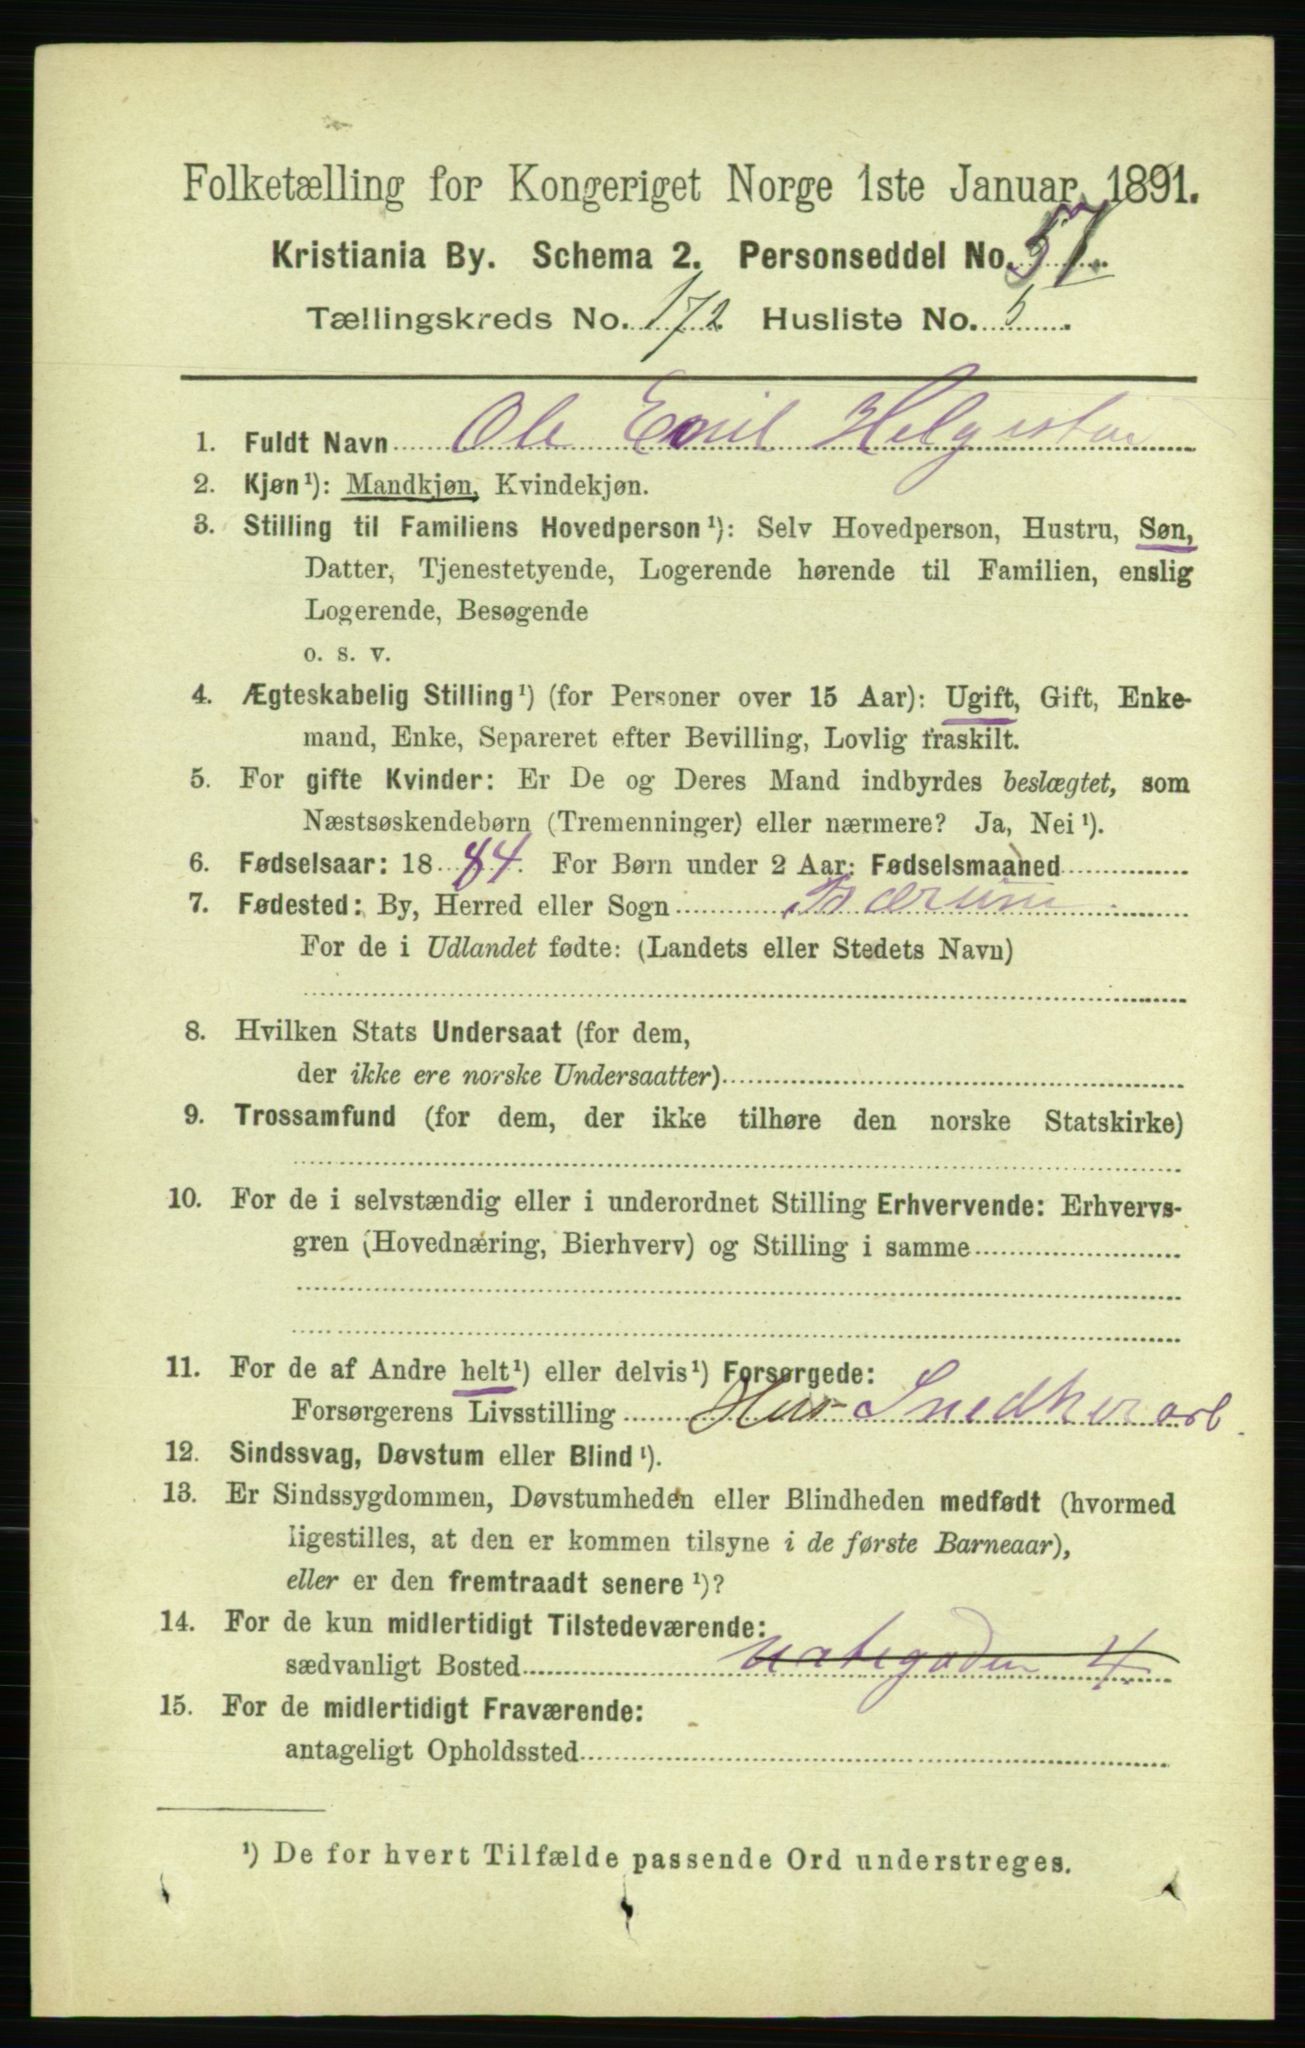 Folketælling for Kongeriget Norge 1ste Januar 1891.
Kristiania By. Schema 2. Personseddel No. 57.
Tællingskreds No. 172 Husliste No. 5.
1. Fuldt Navn Ole Emil
2. Kjøn¹): Mandkjøn, Kvindekjøn.
3. Stilling til Familiens Hovedperson¹): Selv Hovedperson, Hustru, Søn,
Datter, Tjenestetyende, Logerende hørende til Familien, enslig
Logerende, Besøgende
o. s. v.
4. Ægteskabelig Stilling¹) (for Personer over 15 Aar): Ugift, Gift, Enke-
mand, Enke, Separeret efter Bevilling, Lovlig fraskilt.
5. For gifte Kvinder: Er De og Deres Mand indbyrdes beslægtet, som
Næstsøskendebørn (Tremenninger) eller nærmere? Ja, Nei¹).
6. Fødselsaar: 1884. For Børn under 2 Aar: Fødselsmaaned
7. Fødested: By, Herred eller Sogn Bærum
For de i Udlandet fødte: (Landets eller Stedets Navn)
8. Hvilken Stats Undersaat (for dem,
der ikke ere norske Undersaatter)
9. Trossamfund (for dem, der ikke tilhøre den norske Statskirke)
10. For de i selvstændig eller i underordnet Stilling Erhvervende: Erhvervs-
gren (Hovednæring, Bierhverv) og Stilling i samme
11. For de af Andre helt¹) eller delvis¹) Forsørgede:
Forsørgerens Livsstilling Hus-Snedkerarb.
12. Sindssvag, Døvstum eller Blind¹).
13. Er Sindssygdommen, Døvstumheden eller Blindheden medfødt (hvormed
ligestilles, at den er kommen tilsyne i de første Barneaar),
eller er den fremtraadt senere¹)?
14. For de kun midlertidigt Tilstedeværende:
sædvanligt Bosted Urtegaden 4.
15. For de midlertidigt Fraværende:
antageligt Opholdssted
¹) De for hvert Tilfælde passende Ord understreges.